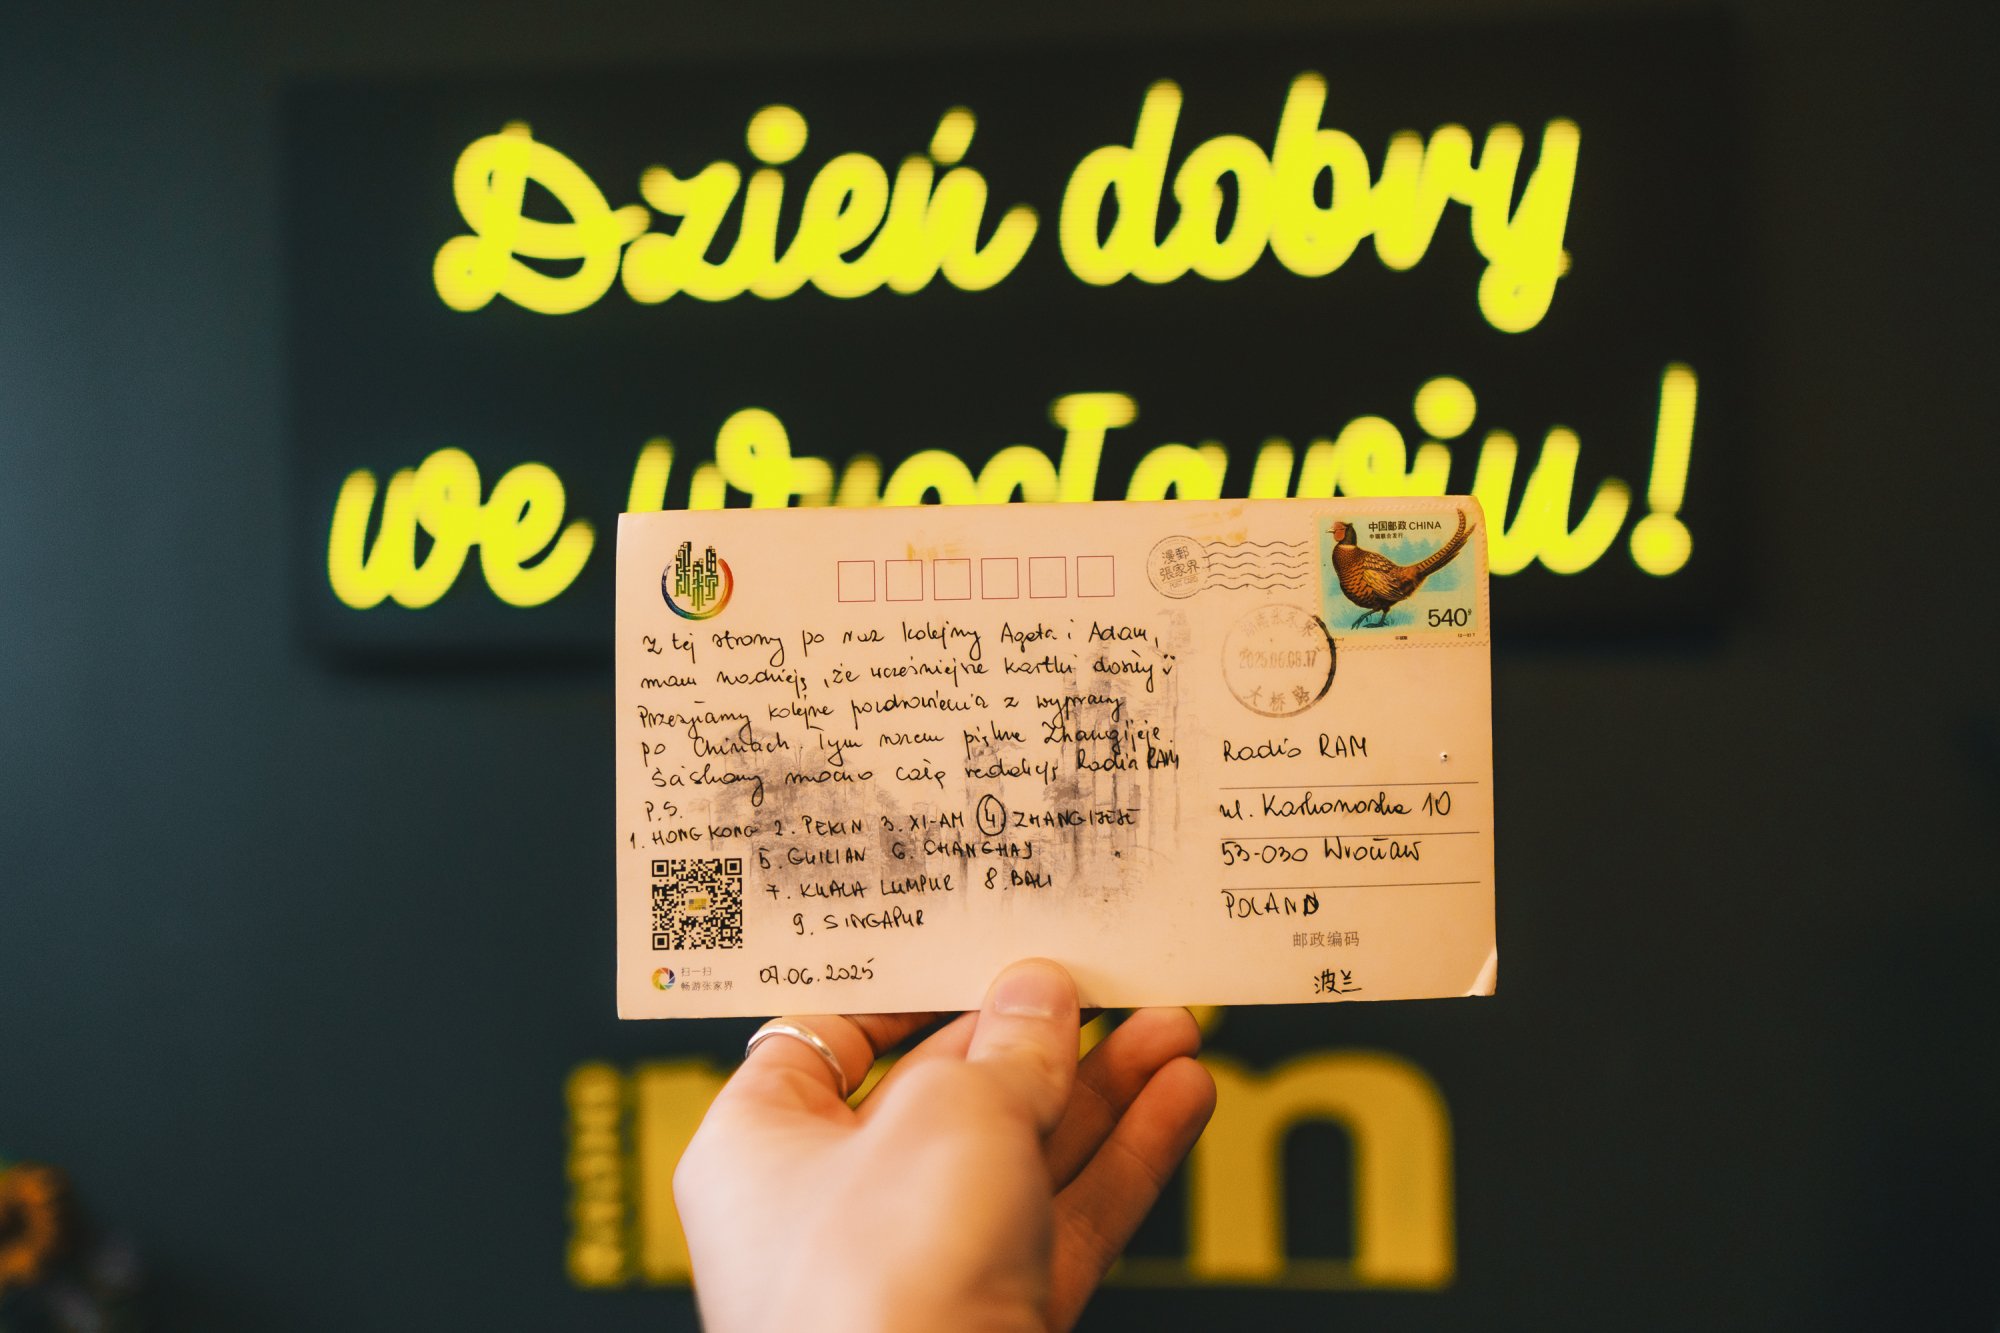 Dzień dobry
we Wrocławiu!
漫郵
張家界
中国邮政 CHINA
中瑞联合发行
540
2025.06.08.17
Z tej strony po raz kolejny Agata i Adam,
mam nadzieję, że wcześniejsze kartki doszły
Przesyłamy kolejne pozdrowienia z wyprawy
po Chinach. Tym razem piękne Zhangijeje.
Ściskamy mocno całą redakcję Radia RAM
P.S.
1. HONG KONG 2. PEKIN 3. XI-AM 4. ZHANGIJEJE
5. GUILIAN 6. CHANGHAJ
7. KUALA LUMPUR 8. BALI
9. SINGAPUR
07.06.2025
扫一扫
畅游张家界
Radio RAM
ul. Karkonoska 10
53-030 Wrocław
POLAND
邮政编码
波兰